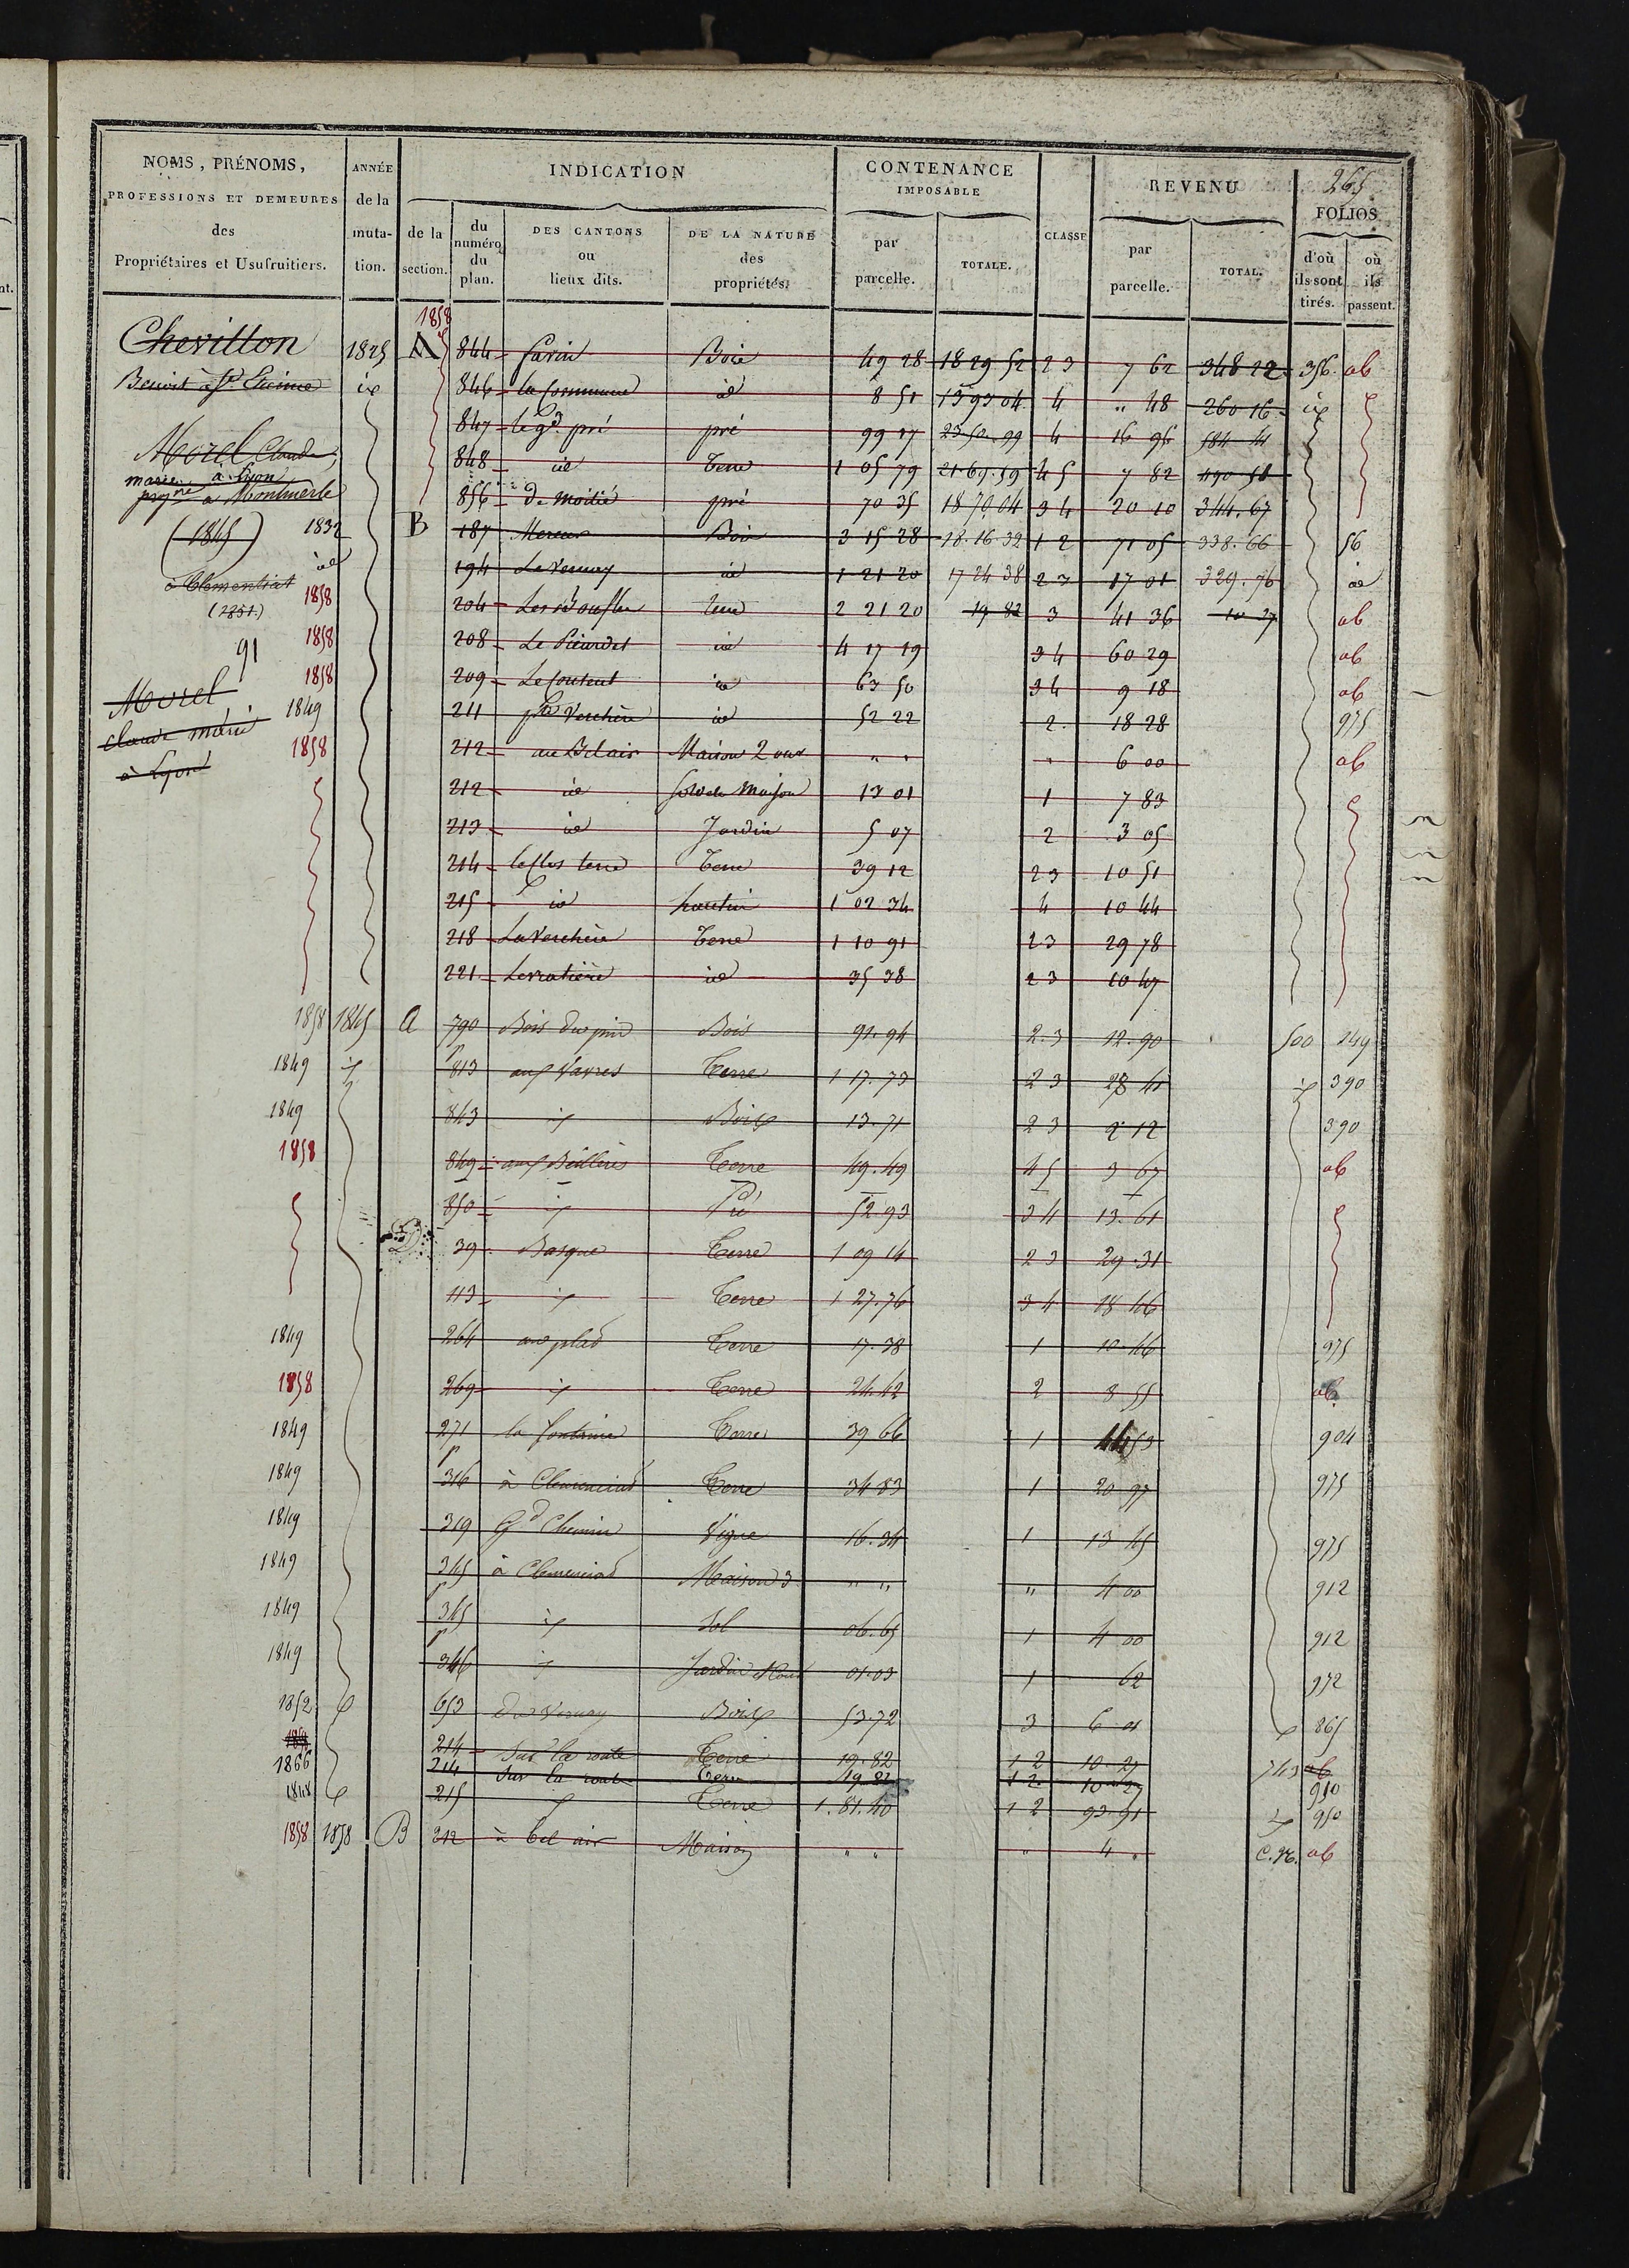 265
NOMS, PRÉNOMS, PROFESSIONS ET DEMEURES des Propriétaires et Usufruitiers.
ANNÉE de la mutation.
INDICATION
de la section.
du numéro du plan.
DES CANTONS ou lieux dits.
DE LA NATURE des propriétés.
CONTENANCE IMPOSABLE
par parcelle.
TOTALE.
CLASSE
REVENU
par parcelle.
TOTAL.
FOLIOS
d'où ils sont tirés.
où ils passent.
1858
Chevillon 1825 A 844 Bois 49 28 18 29 52 2 3 7 62 348 22 356 ab
Benoit à St. Etienne 846 la Commune id 8 51 13 93 04 4 " 48 260 16
847 le gd. pré pré 99 17 23 50 99 4 16 96 584 41
Morel Claude,
848 id Terre 1 05 79 21 69 59 4 5 7 82 490 58
marie à Lyon
à Montmerle
856 De Moitié pré 70 35 18 70 04 3 4 20 10 344.67
(1845) 1832 B 187 Bois 3 15 28 18.16 32 1 2 71 05 338.66 56
id 194 Le Vernay id 1 21 20 17 24 38 2 3 17 01 329.76 id
à Clementiat
(2351.)
1858 204 terre 2 21 20 19 82 3 41 36 10 27 ab
91 1858 208 id 4 17 19 3 4 60 29 ab
1858 209 id 63 50 3 4 9 18 ab
Morel
1849 211 pte Verchère id 52 22 2. 18 28 975
claude marie
1858 212 au Belair Maison 2 ouv " " " 6 00 ab
à Lyon
212 id sol de Maison 13 01 1 7 83
213 id Jardin 5 07 2 3 05
214 le clos terre Terre 39 12 2 3 10 51
215 id hautin 1 02 34 4 10 44
218 La Verchère Terre 1 10 91 2 3 29 78
221 id 35 38 2 3 10 47
1858 1845 a 790 Bois du pin Bois 91.94 2.3 12.90 500 149
1849 813 aux Vavres Terre 1 17.73 2 3 28 41 390
1849 843 Bois 13.71 2 3 2 12 390
1858 849 Terre 49.49 4 5 3 67 ab
850 Pré 52 93 3 4 13.61
39 Basque Terre 1 09 14 2 3 29.31
113 Terre 1 27.76 3 4 18 46
1849 264 Terre 17.38 1 10.46 975
1858 269 Terre 24.42 2 8 55 ab
1849 271 la fontaine Terre 39 66 1 53 904
1849 316 Terre 34 83 1 20 97 975
1849 319 Gd Chemin Vigne 16.34 1 13 45 975
1849 345 Maison 3 " " " 4 00 912
1849 345 Sol 06.65 1 4 00 912
1849 346 Jardin 01.03 1 62 972
1852 653 Du Vernay Bois 53.72 3 6 01 865
214 Sur la route Terre 19.82 1 2 10 27 743 ab
1866 214 Sur la route Terre 19 82 1 2 10 27 910
1848 215 Terre 1.81.40 1 2 93.91 950
1858 1858 B 212 à bel air Maison " " " 4 " ab